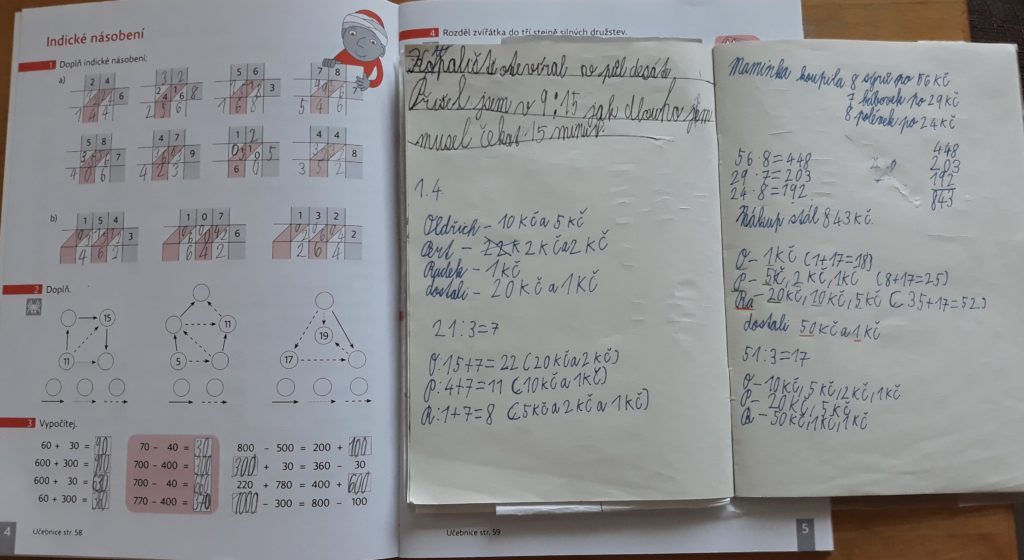 Indické násobení
1 Doplň indické násobení:
a)
2 4
6
1 4 4
3 2
8
2 5 6
5 6
3
1 6 8
7 8
5 4 6
5 8
7
4 0 6
4 7
9
4 2 3
1 2
5
6 0
4 4
8
3 5 2
b)
1 5 4
3
4 6 2
1 0 7
6
6 4 2
1 3 2
2
2 6 4
2 Doplň.
15
11
11
5
19
17
3 Vypočítej.
60 + 30 = 90
600 + 300 = 900
600 + 30 = 630
60 + 300 = 360
70 - 40 = 30
700 - 400 = 300
700 - 40 = 660
770 - 400 = 370
800 - 500 = 200 + 100
300 + 30 = 360 - 30
220 + 780 = 400 + 600
1000 - 300 = 800 - 100
4
Učebnice str. 58
4 Rozděl zvířátka do tří stejně silných družstev.
otevíral v půl desáté
Přišel jsem v 9:15 jak dlouho jsem
musel čekat 15 minut.
1.4.
Oldřich - 10 kč a 5 kč
2 kč a 2 kč
Radek - 1 kč
dostali - 20 kč a 1 kč
21:3=7
O:15+7=22 (20 kč a 2 kč)
P:4+7=11 (10 kč a 1 kč)
R:1+7=8 (5 kč a 2 kč a 1 kč)
Učebnice str. 59
Maminka koupila 8 po 56 kč
7 bábovek po 29 kč
8 polének po 24 kč
56·8=448
29·7=203
24·8=192
448
203
192
843
Nákup stál 843 kč.
O - 1 kč (1+17=18)
P - 5 kč, 2 kč, 1 kč (8+17=25)
Ra - 20 kč, 10 kč, 5 kč (35+17=52)
dostali 50 kč a 1 kč
51:3=17
O - 10 kč, 5 kč, 2 kč, 1 kč
P - 20 kč, 5 kč
R - 50 kč, 1 kč, 1 kč
5